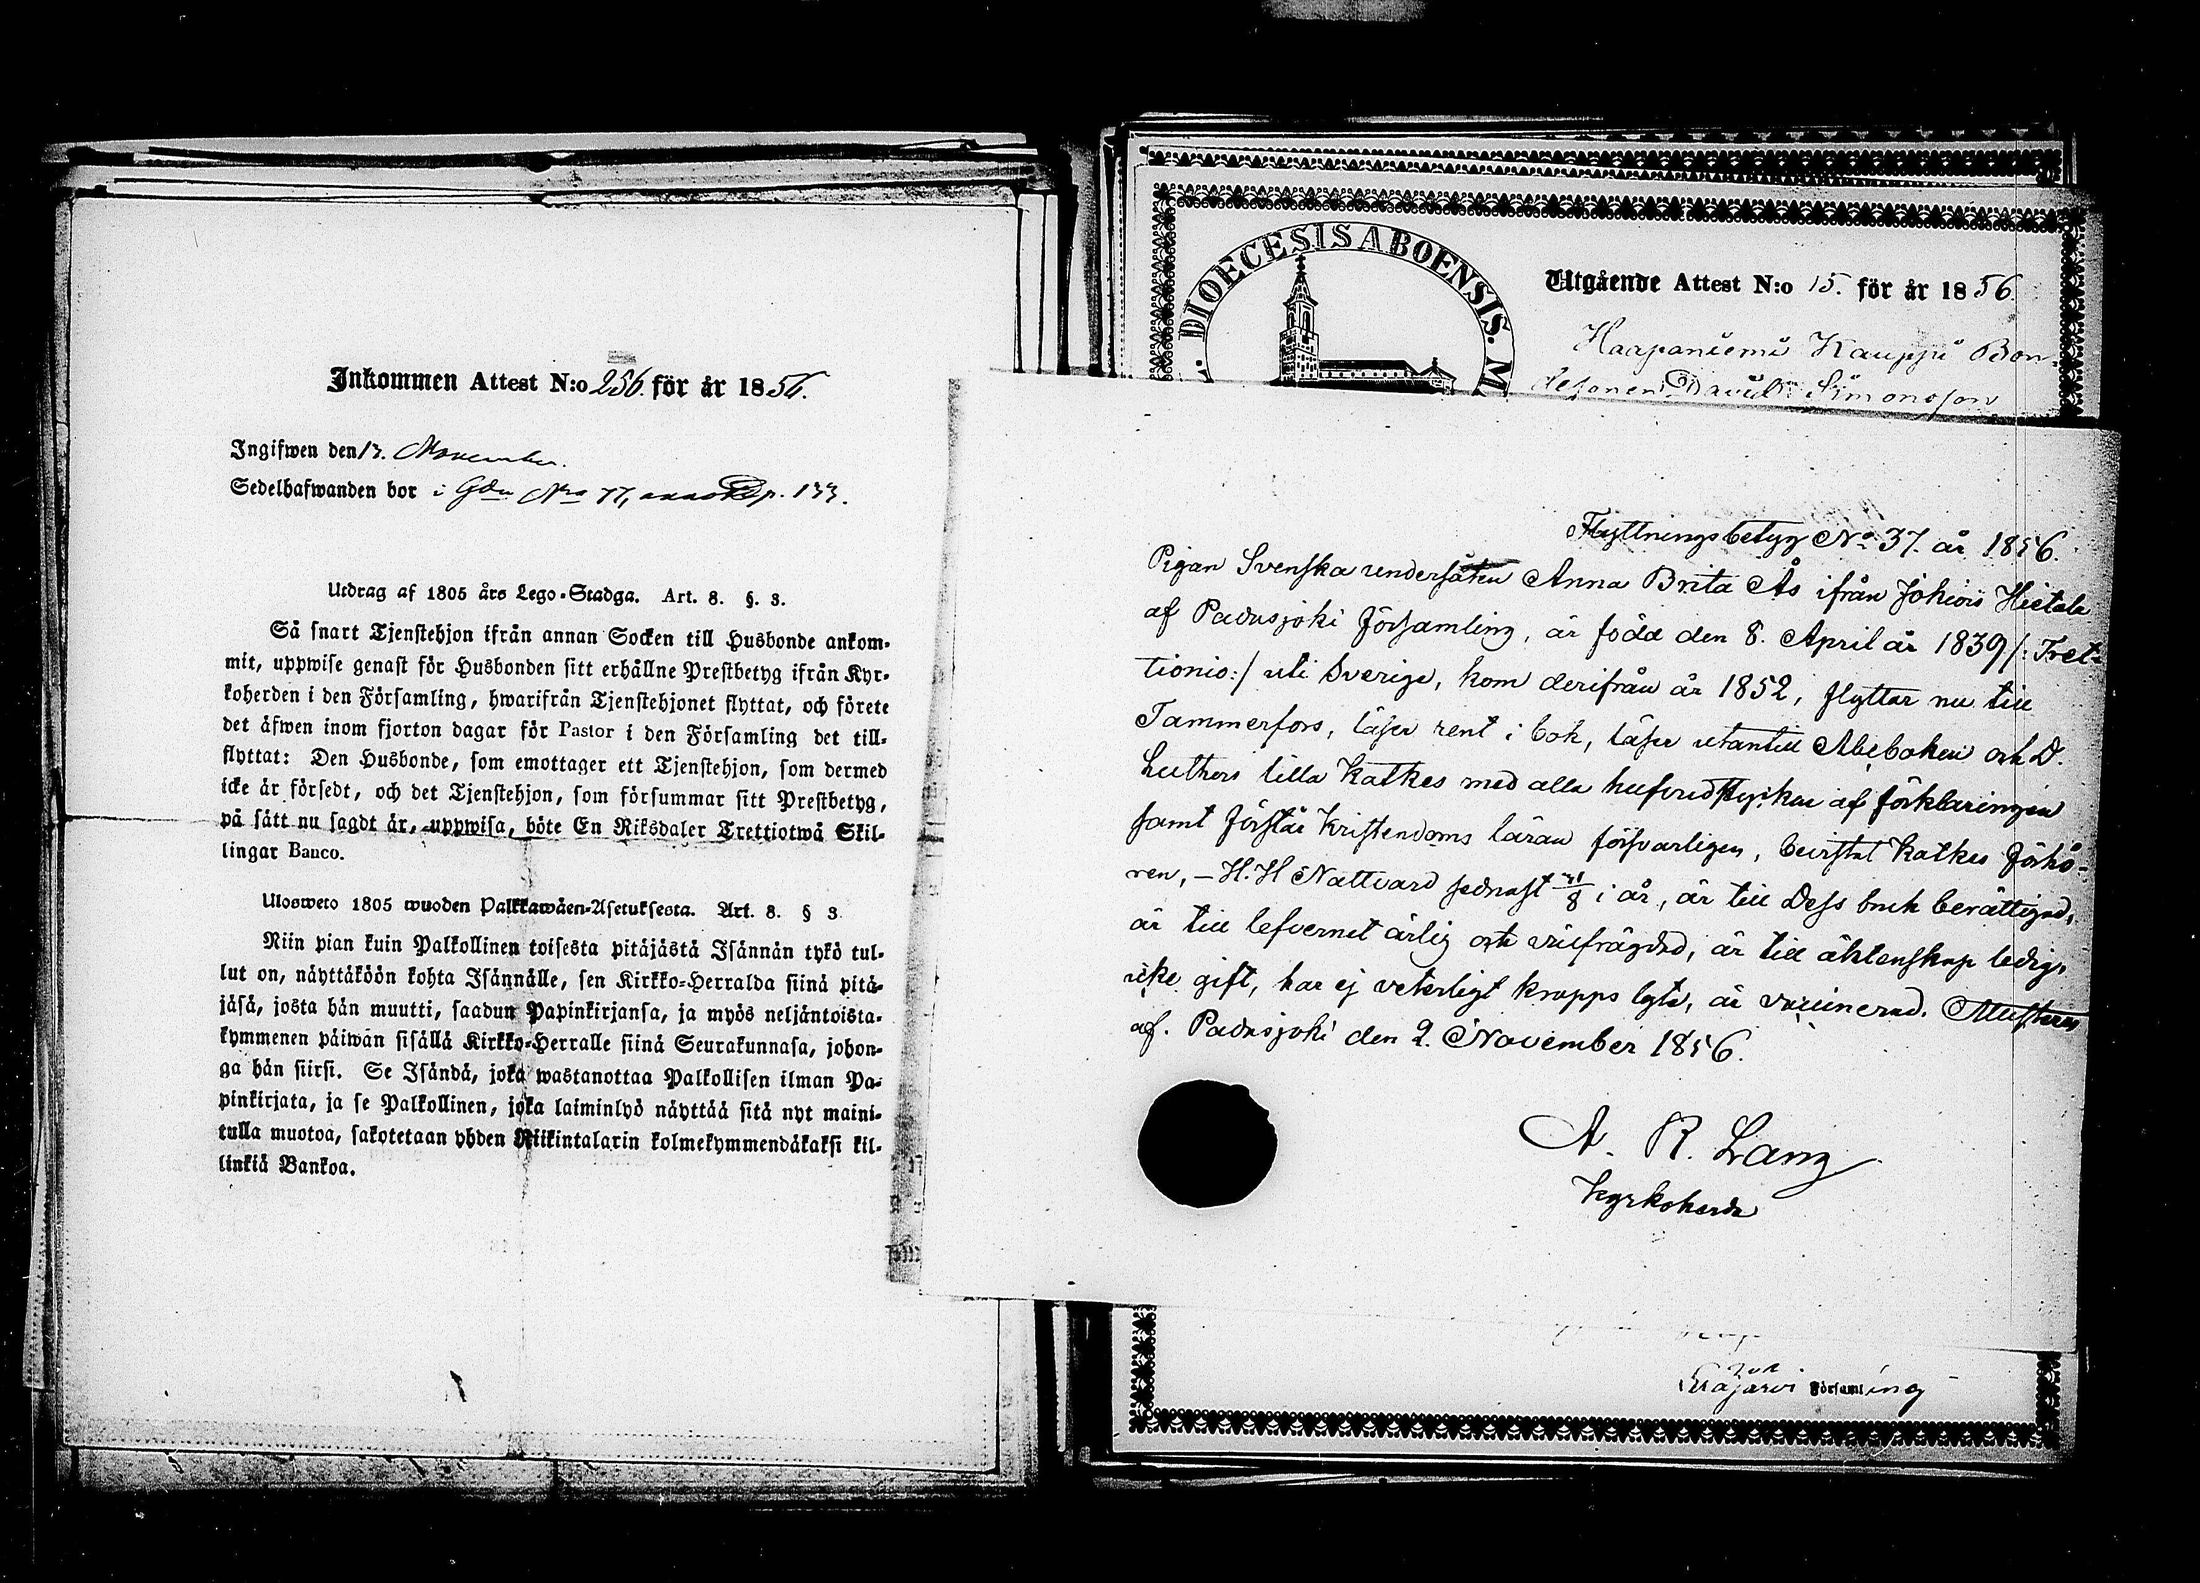 Inkommen Attest N:o 256. för år 1856.
Ingifwen den 13. November.
Sedelhafwanden bor i Gdn Nro 77, p. 133.
Utdrag af 1805 års Lego-Stadga. Art. 8. §. 3.
Så snart Tjenstehjon ifrån annan Socken till Husbonde ankom-
mit, uppwise genast för Husbonden sitt erhållne Prestbetyg ifrån Kyr-
koherden i den Församling, hwarifrån Tjenstehjonet flyttat, och förete
det äfwen inom fjorton dagar för Pastor i den Församling det till-
flyttat: Den Husbonde, som emottager ett Tjenstehjon, som dermed
icke är försedt, och det Tjenstehjon, som försummar sitt Prestbetyg,
på sätt nu sagdt är, uppwisa, böte En Riksdaler Trettiotwå Skil-
lingar Banco.
Ulosweto 1805 wuoden Palkkawäen-Asetuksesta. Art. 8. § 3
Niin pian kuin Palkollinen toisesta pitäjästä Isännän tykö tul-
lut on, näyttäköön kohta Isännälle, sen Kirkko-Herralda siinä pitä-
jäsä, josta hän muutti, saadun Papinkirjansa, ja myös neljäntoista-
kymmenen päiwän sisällä Kirkko-Herralle siinä Seurakunnasa, johon-
ga hän siirsi. Se Isändä, joka wastanottaa Palkollisen ilman Pa-
pinkirjata, ja se Palkollinen, joka laiminlyö näyttää sitä nyt maini-
tulla muotoa, sakotetaan yhden Riikintalarin kolmekymmendäkaksi kil-
linkiä Bankoa.
DIOECESIS ABOENSIS. M
Utgående Attest N:o 15. för år 1856.
Haapaniemi Kauppi Bon-
desonen David Simonsson
Flyttningsbetyg No 37. år 1856.
Pigan Svenska undersåten Anna Brita Ås ifrån Johiois Hietala
af Padasjoki Församling, är född den 8. April år 1839 /: Tret-
tionio:/ uti Sverige, kom derifrån år 1852, flyttar nu till
Tammerfors, läser rent i bok, läser utantill Abeboken och D.
Luthers lilla Katkes med alla hufvudstycken af förklaringen
samt förstår Kristendoms läran försvarligen, bevistat Katkes Förhö-
ren, – H. H Nattvard sednast i år, är till Dess bruk berättigad,
är till lefvernet ärlig och välfrägdad, är till äktenskap ledig,
icke gift, har ej veterligt kropps lyte, är vaccinerad.
af. Padasjoki den 2. November 1856.
A. R. Lang
Kyrkoherde
Eräjärvi Församling